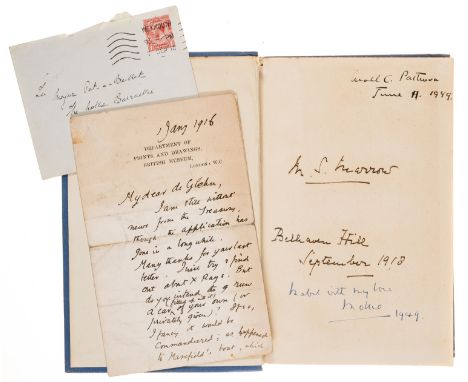 1 Jany 1916
DEPARTMENT OF
PRINTS AND DRAWINGS,
BRITISH MUSEUM,
LONDON: W.C.
My dear de Glehn,
I am still without
news from the Treasury,
though the application has
gone in a long while.
Many thanks for your last
letter. I will try & find
out about X Rays. But
do you intend the
a car of your own (or
privately given)? If so,
I fancy it would be
commandeered; as happened
to Masefield's boat, which
June 1949.
M. S. Marrow
Belhaven Hill
September 1918
with my love
1949.